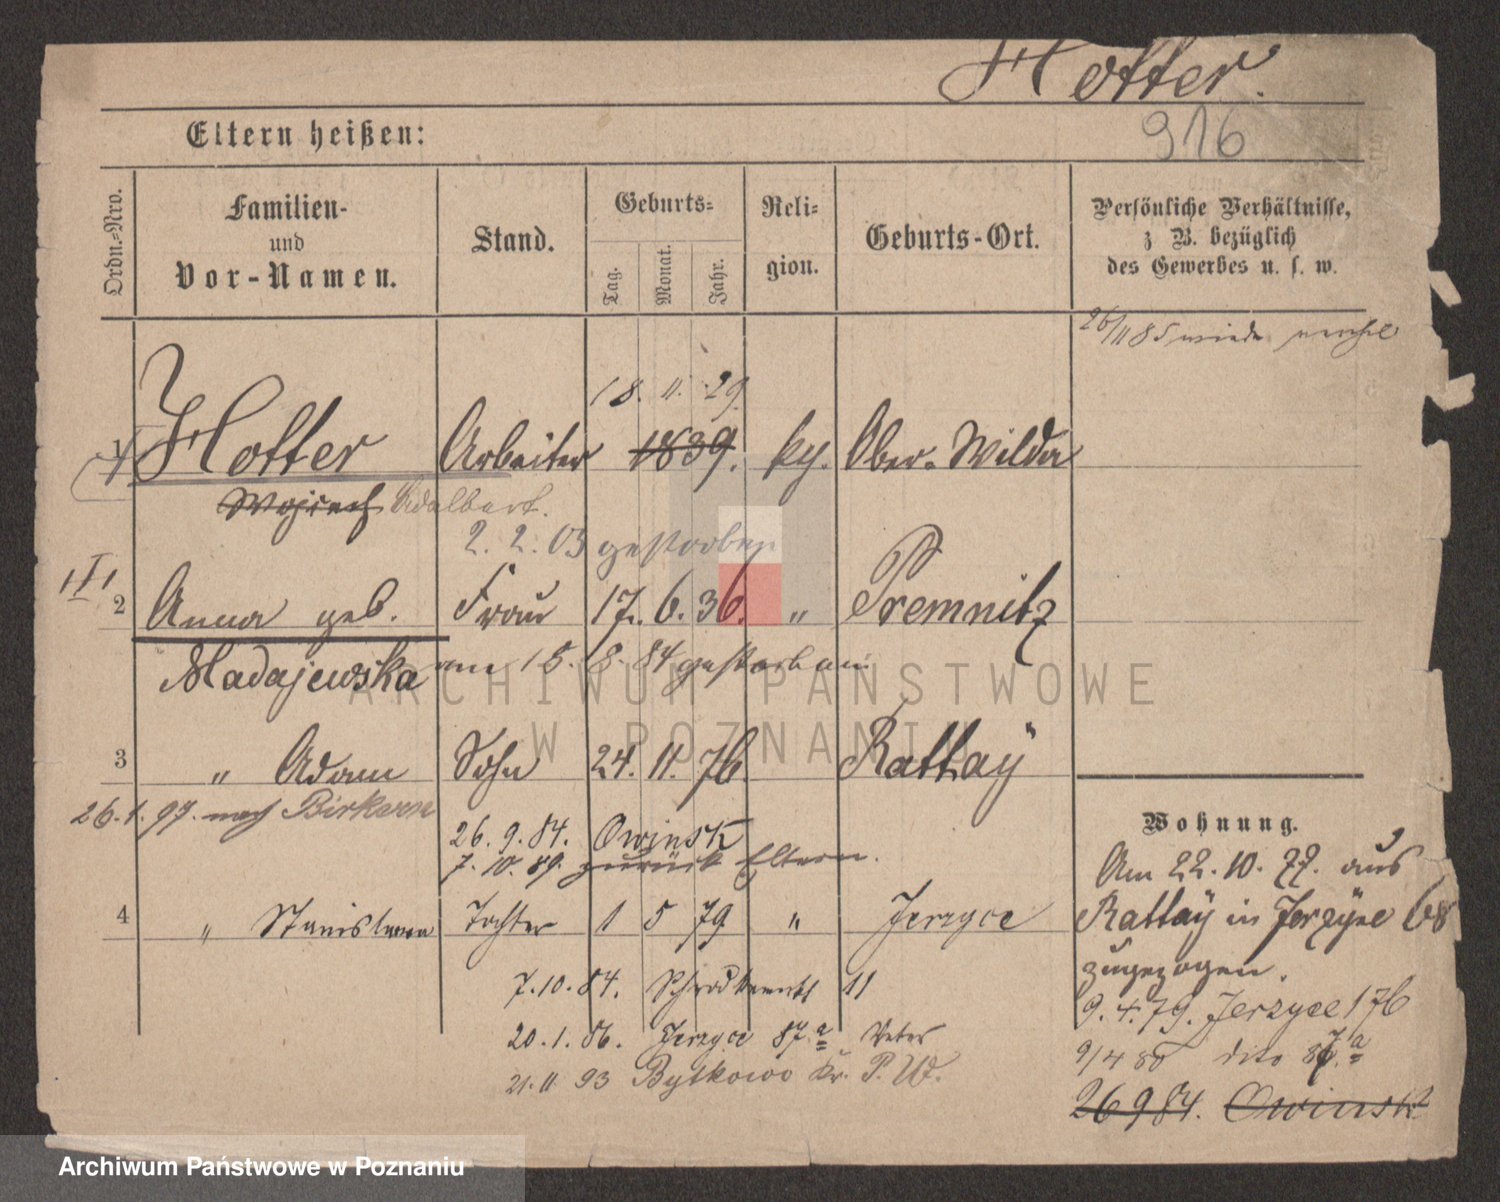 Hotter.
916
Eltern heißen:
Ordn.=Nro.
Familien-
und
Vor-Namen.
Stand.
Geburts=
Tag.
Monat.
Jahr.
Reli=
gion.
Geburts-Ort.
Persönliche Verhältnisse,
z B. bezüglich
des Gewerbes u. s. w.
26/11 85
18. 11. 29.
1 Hotter Arbeiter 1839. kg. Ober-Wilda
Wojciech Adalbert.
2. 2. 03 gestorben
2 Anna geb. Frau 17. 6. 36. " Premnitz
Madajewska am 15. 8. 84 gestorben
3 " Adam Sohn 24. 11. 76. Rattay
26. 1. 97. nach Birkern
26. 9. 84. Owinsk
7. 10. 89. zurück Eltern.
4 " Stanislawa Tochter 1 5 79 " Jerzyce
7. 10. 84. 11
20. 1. 86. Jerzyce 87.a Vater
21. 11 93 Bytkowo Kr. P. W.
Wohnung.
Am 22. 10. 77. aus
Rattay in Jerzyce 68
zugezogen.
9. 4. 79. Jerzyce 176
9/4 80 dito 87.a
26 9 84. Owinsk
ARCHIWUM PAŃSTWOWE
W POZNANIU
Archiwum Państwowe w Poznaniu